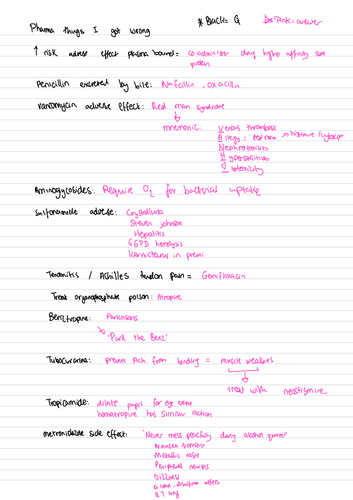 Pharma things I got wrong
* Black = Q
Pink = answer
↑ risk adverse effect plasma bound = co administer drug higher affinity same
protein
Penicillin excreted by bile: Nafcillin, oxacillin
Vancomycin adverse effect: Red man syndrome
mnemonic: Venous thrombose
Allergy = Red man → histamine/
Nephrotoxicity
Ototoxicity
Aminoglycosides: Require O2 for bacterial uptake
Sulfonamide adverse: Crystalluria
Steven Johnson
Hepatitis
G6PD hemolysis
Kernicterus in premi
Tendonitis / Achilles tendon pain = Gemifloxacin
Treat organophosphate poison: Atropine
Benztropine: Parkinsons
'Park the Benz'
Tubocurarine: prevent Ach from binding = muscle weakness
treat with neostigmine
Tropicamide: dilate pupil for eye exam
homatropine has similar action
metronidazole side effect: 'Never mess peacefully during alcohol
Nausea/vomiting
Metallic taste
Peripheral neuritis
Dizziness
disulfiram effect